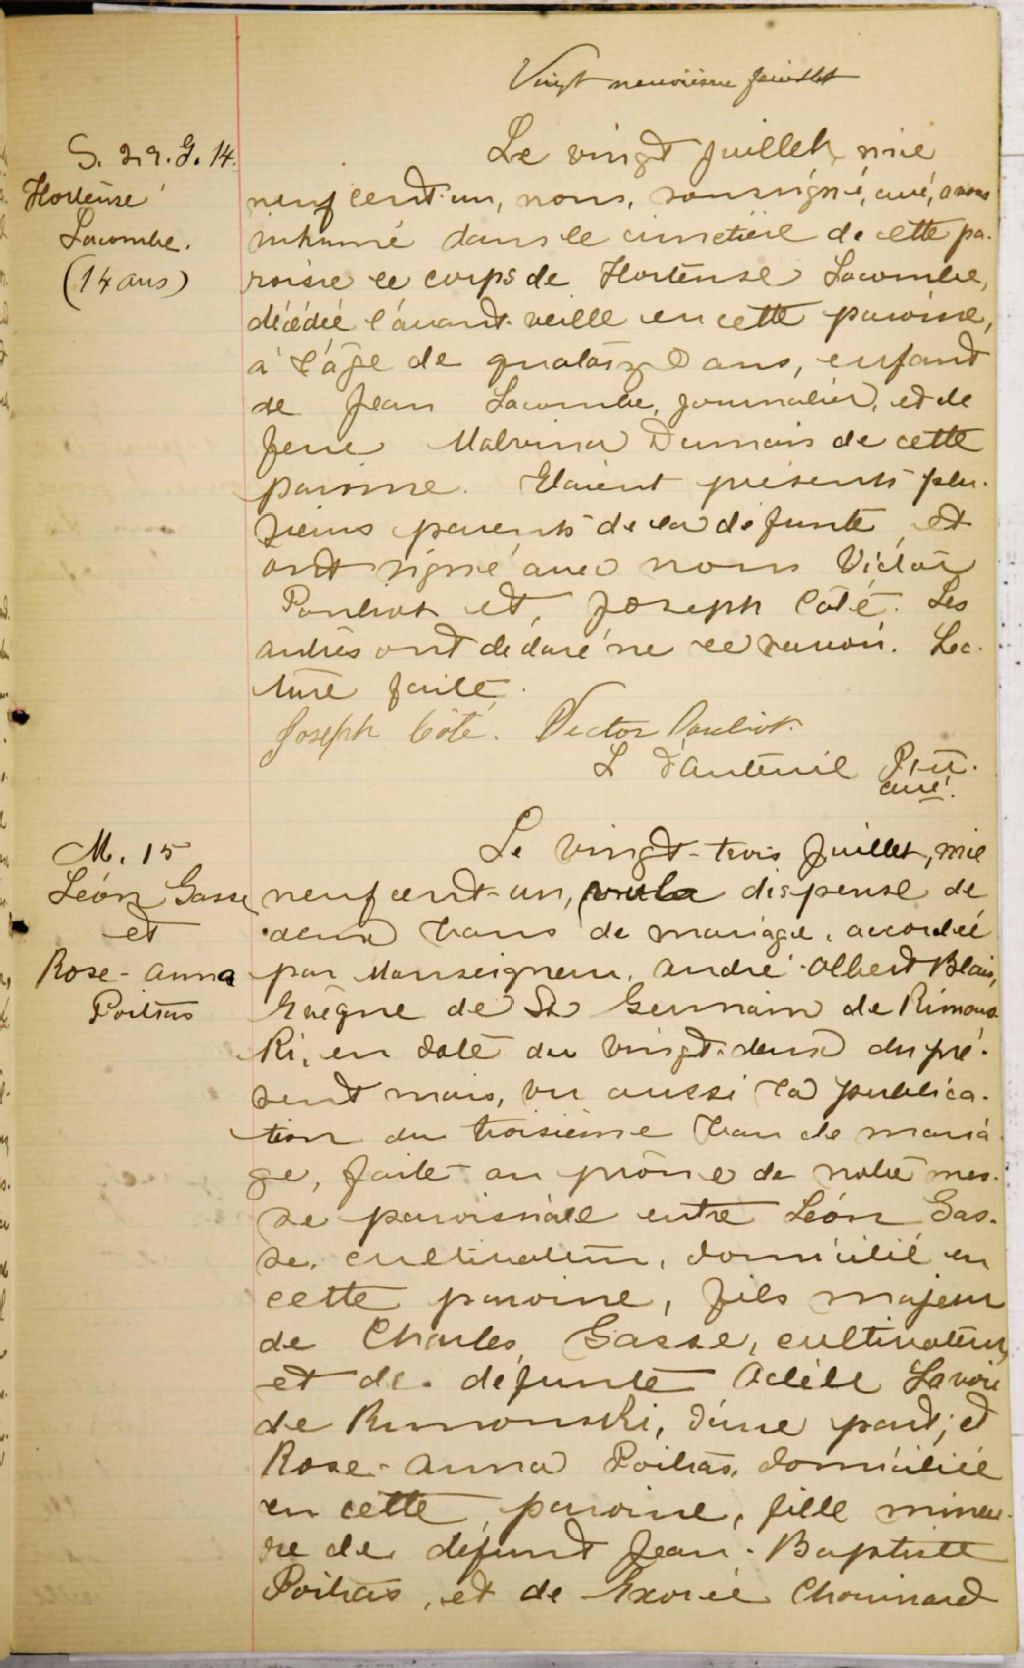 Vingt neuvième feuillet
S. 29. G. 14.
Hortense
Lacombe.
(14 ans)
Le vingt juillet, mil
neuf cent-un, nous, soussigné, curé, avons
inhumé dans le cimetière de cette pa-
roisse le corps de Hortense Lacombe,
décédée l'avant-veille en cette paroisse,
à l'âge de quatorze ans, enfant
de Jean Lacombe, journalier, et de
feue Malvina Dumais de cette
paroisse. Etaient présents plu-
sieurs parents de la défunte et
ont signé avec nous Victor
Pouliot et Joseph Côté. Les
autres ont déclaré ne le savoir. Lec-
ture faite.
Joseph Côté. Victor Pouliot.
L D'Auteuil Ptre.
curé.
M. 15
Léon Gasse
et
Rose-Anna
Poitras
Le vingt-trois juillet, mil
neuf cent-un, vu la dispense de
deux bans de mariage, accordée
par Monseigneur André-Albert Blais,
Evêque de St Germain de Rimous-
ki, en date du vingt-deux du pré-
sent mois, vu aussi la publica-
tion du troisième ban de maria-
ge, faite au prône de notre mes-
se paroissiale entre Léon Gas-
se, cultivateur, domicilié en
cette paroisse, fils majeur
de Charles Gasse, cultivateur,
et de défunte Adèle Lavoie
de Rimouski, d'une part; et
Rose-Anna Poitras, domiciliée
en cette paroisse, fille mineu-
re de défunt Jean-Baptiste
Poitras, et de Exorée Chouinard